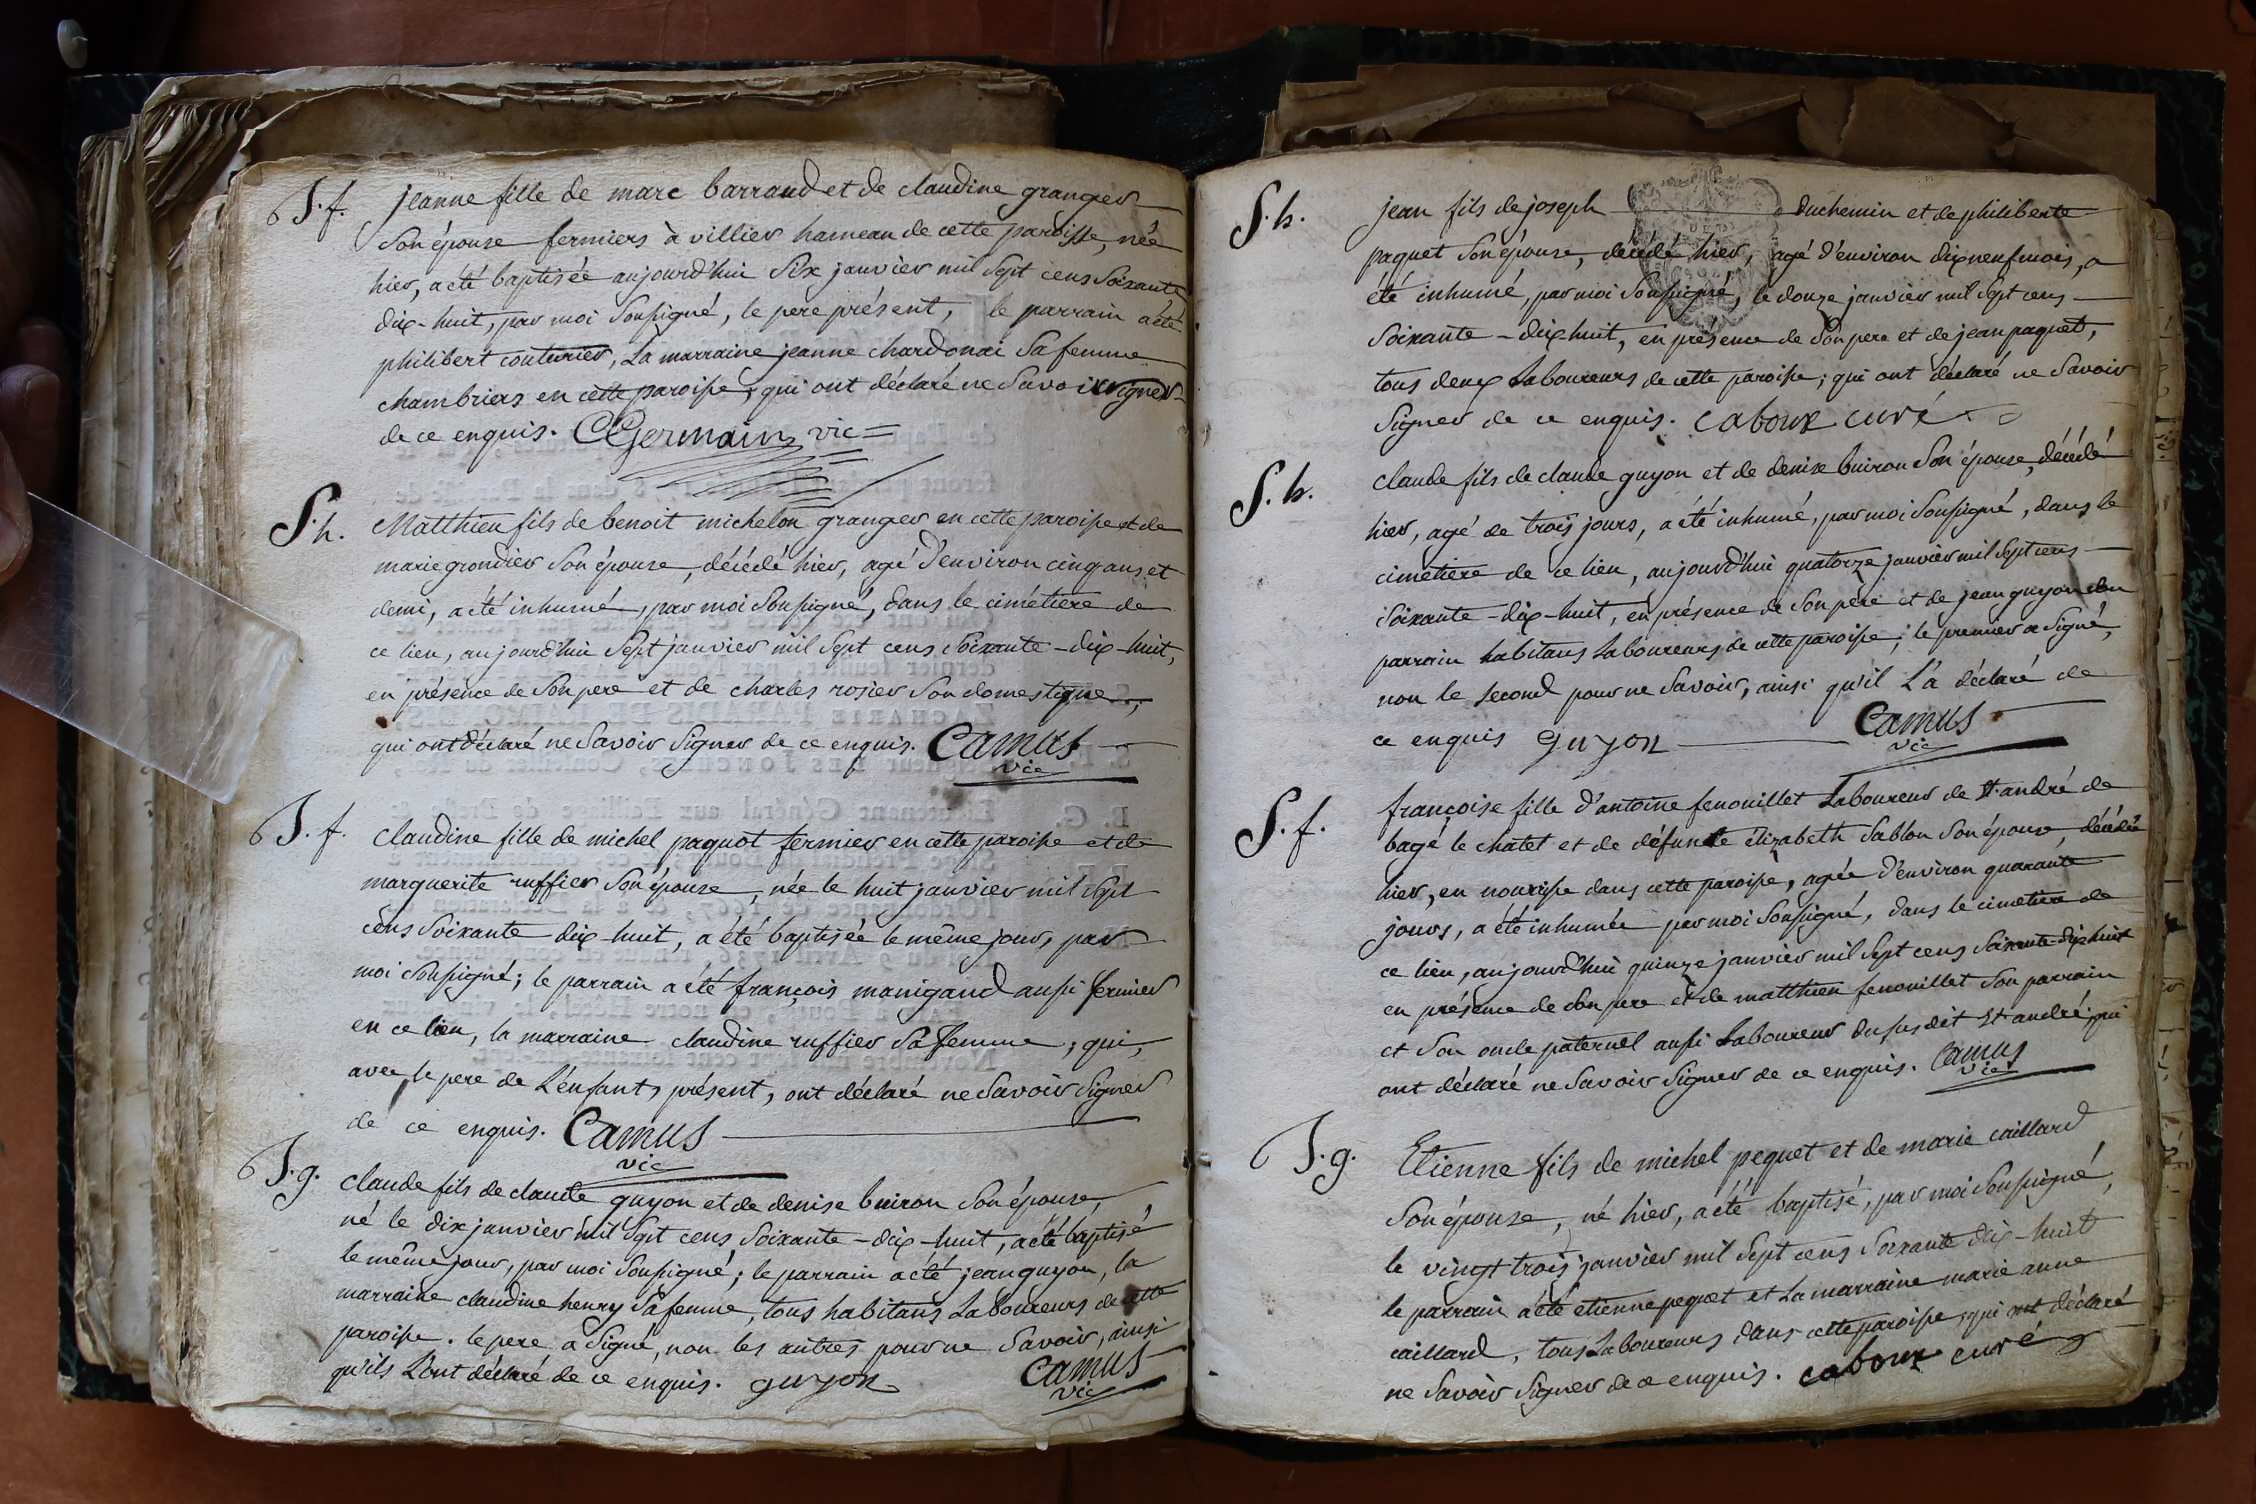 B.f. jeanne fille de marc barraud et de claudine granger
son épouse fermiers à villier hameau de cette paroisse, née
hier, a été baptisée aujourd'hui six janvier mil sept cens soixante
dix-huit, par moi soussigné, le pere présent, le parrain a été
philibert couturier, la marraine jeanne chardonai sa femme
chambriers en cette paroisse, qui ont déclaré ne savoir signer
de ce enquis. CGermain vic
S. h. Matthieu fils de benoit michelon granger en cette paroisse et de
marie grondier son épouse, décédé hier, agé d'environ cinq ans et
demi, a été inhumé, par moi soussigné, dans le cimétiere de
ce lieu, aujourd'hui sept janvier mil sept cens soixante-dix-huit,
en présence de son pere et de charles rosier son domestique,
qui ont déclaré ne savoir signer de ce enquis. Camus
vic
B. f. claudine fille de michel paquet fermier en cette paroisse et de
marguerite ruffier son épouse, née le huit janvier mil sept
cens soixante dix-huit, a été baptisée le même jour, par
moi soussigné; le parrain a été françois manigand aussi fermier
en ce lieu, la marraine claudine ruffier sa femme, qui,
avec le pere de l'enfant, présent, ont déclaré ne savoir signer
de ce enquis. Camus
vic
B. g. claude fils de claude guyon et de denise buiron son épouse,
né le dix janvier mil sept cens soixante-dix-huit, a été baptisé
le même jour, par moi soussigné; le parrain a été jean guyon, la
marraine claudine henry sa femme, tous habitans laboureurs de cette
paroisse. le pere a signé, non les autres pour ne savoir, ainsi
qu'ils l'ont déclaré de ce enquis. guyon Camus
vic
S. h. jean fils de joseph duchemin et de philiberte
paquet son épouse, décédé hier, agé d'environ dix neuf mois, a
été inhumé, par moi soussigné, le douze janvier mil sept cens
soixante-dix huit, en présence de son pere et de jean paquet,
tous deux laboureurs de cette paroisse; qui ont déclaré ne savoir
signer de ce enquis. caboux curé
S. h. claude fils de claude guyon et de denise buiron son épouse, décédé
hier, agé de trois jours, a été inhumé, par moi soussigné, dans le
cimetiere de ce lieu, aujourd'hui quatorze janvier mil sept cens
soixante-dix-huit, en présence de son père et de jean guyon son
parrain habitans laboureurs de cette paroisse; le premier a signé,
non le second pour ne savoir, ainsi qu'il l'a déclaré de
ce enquis guyon Camus
vic
S. f. françoise fille d'antoine fenouillet laboureur de St andré de
bagé le chatel et de défunte élizabeth sablon son épouse, décédée
hier, en nourisse dans cette paroisse, agée d'environ quarante
jours, a été inhumée par moi soussigné, dans le cimetiere de
ce lieu, aujourd'hui quinze janvier mil sept cens soixante-dix huit
en présence de son pere et de matthieu fenouillet son parrain
et son oncle paternel aussi laboureur du susdit St andré; qui
ont déclaré ne savoir signer de ce enquis. Camus
vic
B. g. Etienne fils de michel pequet et de marie caillard
son épouse, né hier, a été baptisé, par moi soussigné,
le vingt trois janvier mil sept cens soixante dix-huit
le parrain a été etienne pequet et la marraine marie anne
caillard, tous laboureurs dans cette paroisse, qui ont déclaré
ne savoir signer de ce enquis. caboux curé